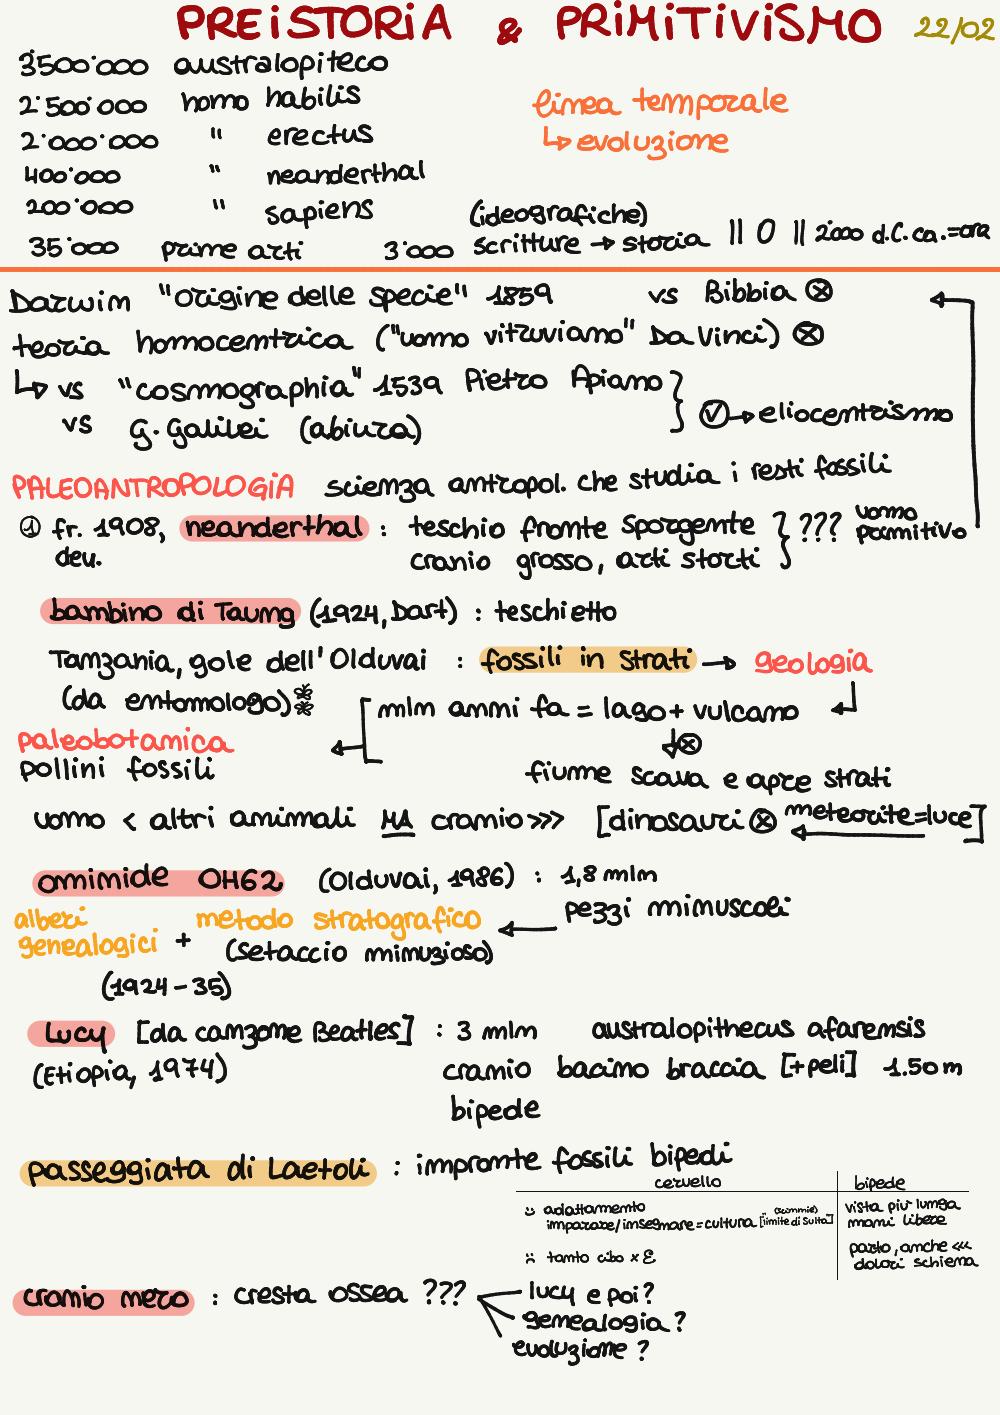 PREISTORIA & PRIMITIVISMO 22/02
3500'000 australopiteco
2'500'000 homo habilis
linea temporale
2'000'000 " erectus
↳ evoluzione
400'000 " neanderthal
200'000 " sapiens
(ideografiche)
35'000 prime arti 3'000 scritture → storia || 0 || 2'000 d.C. ca.=ora
Darwin "origine delle specie" 1859 vs Bibbia ⊗
teoria homocentrica ("uomo vitruviano" Da Vinci) ⊗
↳ vs "cosmographia" 1539 Pietro Apiano
vs G. Galilei (abiura)
→ eliocentrismo
PALEOANTROPOLOGIA scienza antropol. che studia i resti fossili
① fr. 1908, neanderthal : teschio fronte sporgente } ??? uomo primitivo
deu. cranio grosso, arti storti
bambino di Taung (1924, Dart) : teschietto
Tanzania, gole dell'Olduvai : fossili in strati → geologia
(da entomologo)
mln anni fa = lago + vulcano
paleobotanica
pollini fossili
⊗
fiume scava e apre strati
uomo < altri animali MA cranio >>> [dinosauri ⊗ meteorite=luce]
ominide OH62 (Olduvai, 1986) : 1,8 mln
pezzi minuscoli
alberi genealogici + metodo stratografico
(setaccio minuzioso)
(1924-35)
Lucy [da canzone Beatles] : 3 mln australopithecus afarensis
(Etiopia, 1974) cranio bacino braccia [+peli] 1.50 m
bipede
passeggiata di Laetoli : impronte fossili bipedi
cervello bipede
:) adattamento
imparare/insegnare=cultura [(scimmie) limite di Sulta]
vista più lunga
mani libere
:( tanto cibo x E
parto, anche <<<
dolori schiena
cranio nero : cresta ossea ???
lucy e poi?
genealogia?
evoluzione?